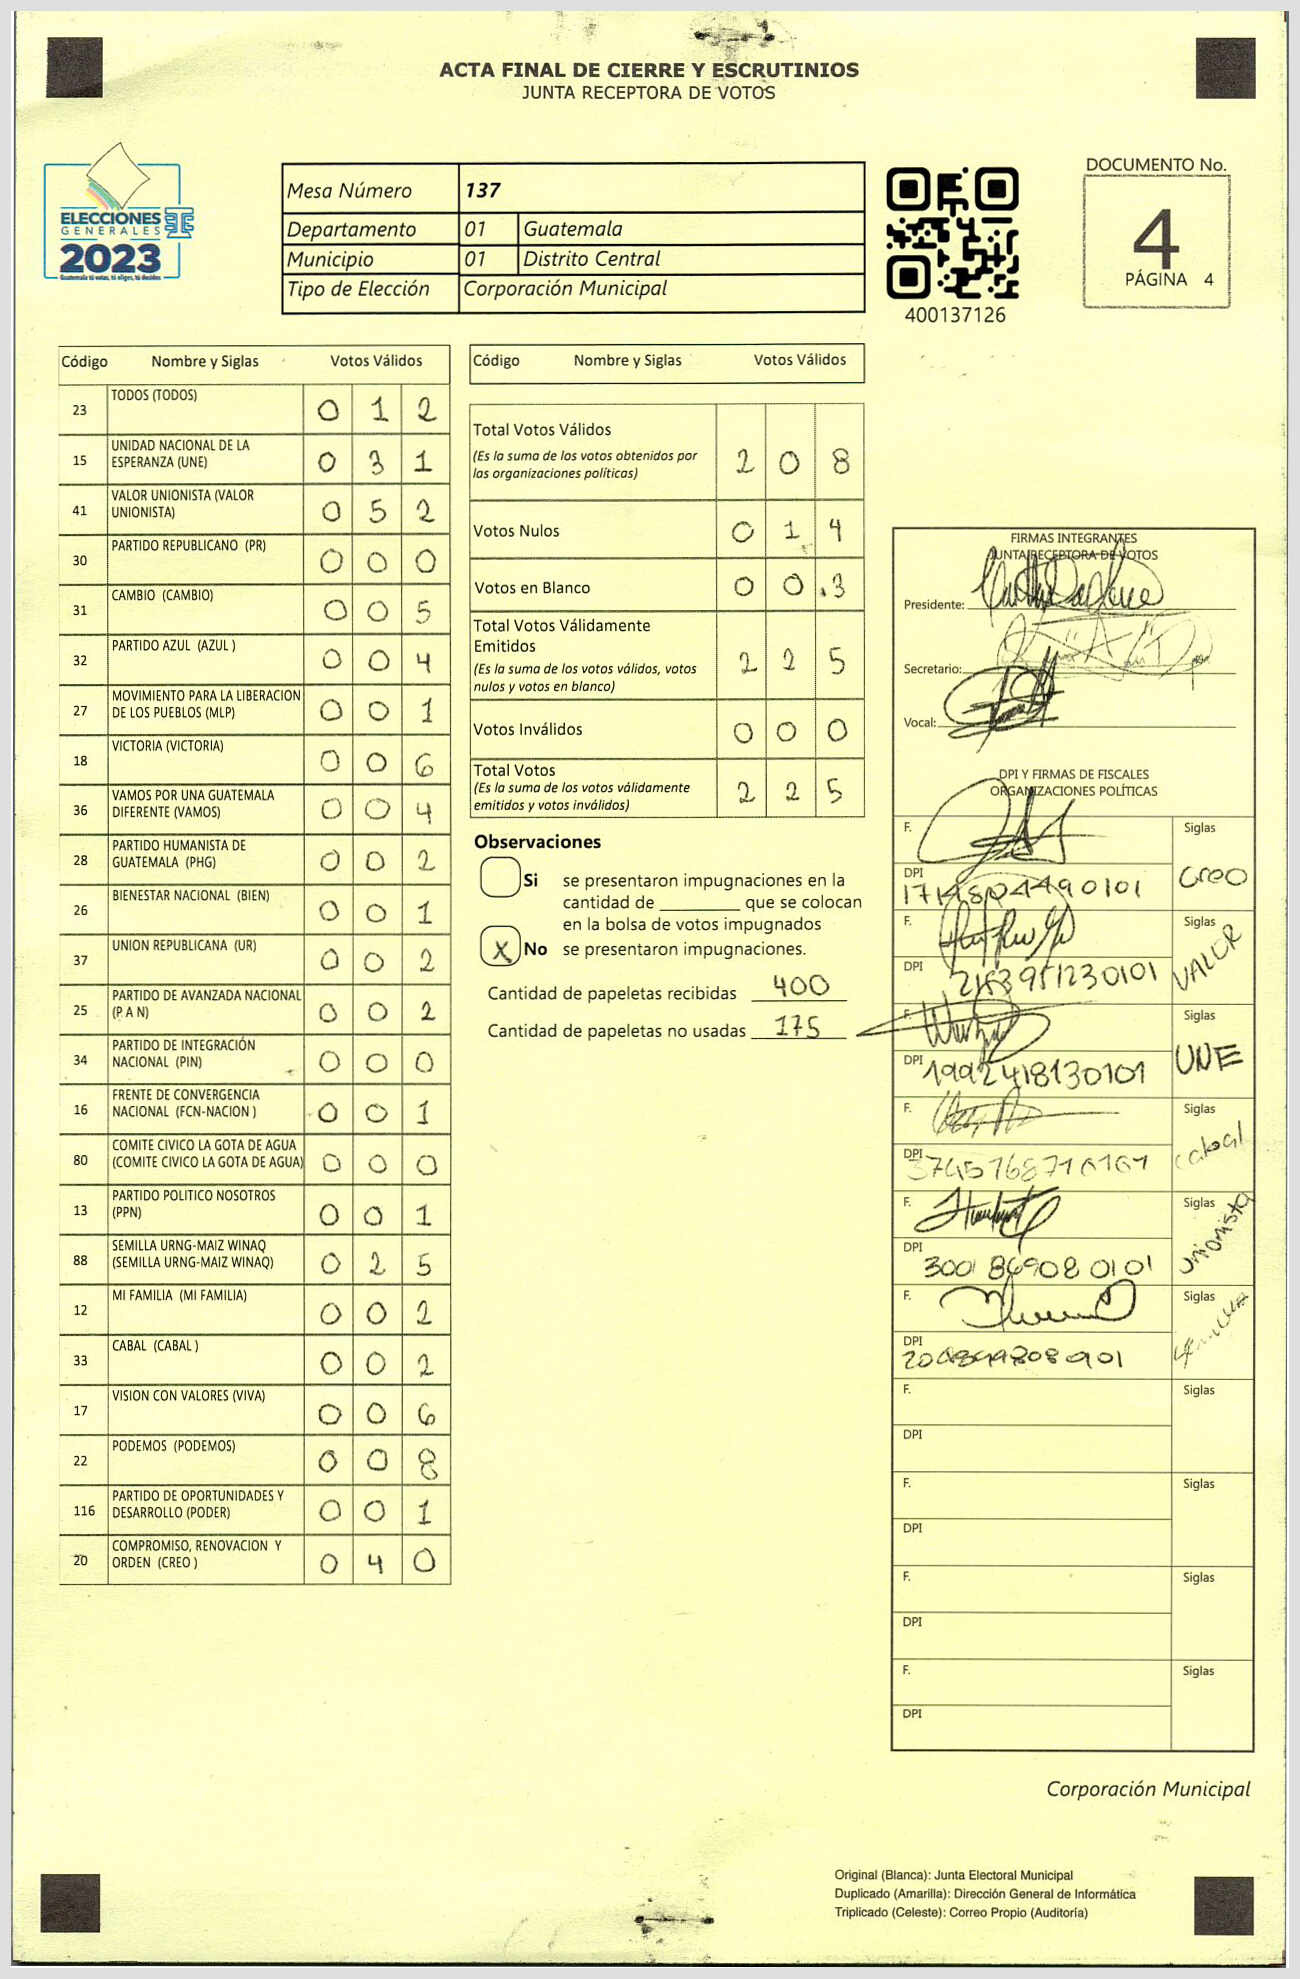 ACTA FINAL DE CIERRE Y ESCRUTINIOS
JUNTA RECEPTORA DE VOTOS
ELECCIONES
GENERALES
2023
Guatemala tú votas, tú eliges, tú decides
Mesa Número 137
Departamento 01 Guatemala
Municipio 01 Distrito Central
Tipo de Elección Corporación Municipal
400137126
DOCUMENTO No.
4
PÁGINA 4
Código Nombre y Siglas Votos Válidos
23 TODOS (TODOS) 0 1 2
15 UNIDAD NACIONAL DE LA
ESPERANZA (UNE) 0 3 1
41 VALOR UNIONISTA (VALOR
UNIONISTA) 0 5 2
30 PARTIDO REPUBLICANO (PR) 0 0 0
31 CAMBIO (CAMBIO) 0 0 5
32 PARTIDO AZUL (AZUL ) 0 0 4
27 MOVIMIENTO PARA LA LIBERACION
DE LOS PUEBLOS (MLP) 0 0 1
18 VICTORIA (VICTORIA) 0 0 6
36 VAMOS POR UNA GUATEMALA
DIFERENTE (VAMOS) 0 0 4
28 PARTIDO HUMANISTA DE
GUATEMALA (PHG) 0 0 2
26 BIENESTAR NACIONAL (BIEN) 0 0 1
37 UNION REPUBLICANA (UR) 0 0 2
25 PARTIDO DE AVANZADA NACIONAL
(P A N) 0 0 2
34 PARTIDO DE INTEGRACIÓN
NACIONAL (PIN) 0 0 0
16 FRENTE DE CONVERGENCIA
NACIONAL (FCN-NACION ) 0 0 1
80 COMITE CIVICO LA GOTA DE AGUA
(COMITE CIVICO LA GOTA DE AGUA) 0 0 0
13 PARTIDO POLITICO NOSOTROS
(PPN) 0 0 1
88 SEMILLA URNG-MAIZ WINAQ
(SEMILLA URNG-MAIZ WINAQ) 0 2 5
12 MI FAMILIA (MI FAMILIA) 0 0 2
33 CABAL (CABAL ) 0 0 2
17 VISION CON VALORES (VIVA) 0 0 6
22 PODEMOS (PODEMOS) 0 0 8
116 PARTIDO DE OPORTUNIDADES Y
DESARROLLO (PODER) 0 0 1
20 COMPROMISO, RENOVACION Y
ORDEN (CREO ) 0 4 0
Código Nombre y Siglas Votos Válidos
Total Votos Válidos
(Es la suma de los votos obtenidos por
las organizaciones políticas) 2 0 8
Votos Nulos 0 1 4
Votos en Blanco 0 0 3
Total Votos Válidamente
Emitidos
(Es la suma de los votos válidos, votos
nulos y votos en blanco) 2 2 5
Votos Inválidos 0 0 0
Total Votos
(Es la suma de los votos válidamente
emitidos y votos inválidos) 2 2 5
Observaciones
Si se presentaron impugnaciones en la
cantidad de ________ que se colocan
en la bolsa de votos impugnados
X No se presentaron impugnaciones.
Cantidad de papeletas recibidas 400
Cantidad de papeletas no usadas 175
FIRMAS INTEGRANTES
JUNTA RECEPTORA DE VOTOS
Presidente:
Secretario:
Vocal:
DPI Y FIRMAS DE FISCALES
ORGANIZACIONES POLÍTICAS
F. Siglas
DPI Creo
F. Siglas
DPI VALOR
F. Siglas
DPI 1992418130101 UNE
F. Siglas
DPI cabal
F. Siglas
DPI 3001869080101 unionista
F. Siglas
DPI
F. Siglas
DPI
F. Siglas
DPI
F. Siglas
DPI
F. Siglas
DPI
Corporación Municipal
Original (Blanca): Junta Electoral Municipal
Duplicado (Amarilla): Dirección General de Informática
Triplicado (Celeste): Correo Propio (Auditoría)